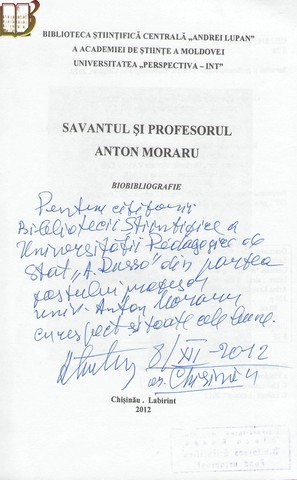 BIBLIOTECA ȘTIINȚIFICĂ CENTRALĂ „ANDREI LUPAN”
A ACADEMIEI DE ȘTIINȚE A MOLDOVEI
UNIVERSITATEA „PERSPECTIVA – INT”
SAVANTUL ȘI PROFESORUL
ANTON MORARU
BIOBIBLIOGRAFIE
Pentru cititorii
Bibliotecii Științifice a
Universității Pedagogice de
Stat „A. Russo” din partea
fostului profesor
univ. Anton Moraru
cu respect și toate cele bune.
8/XII-2012
or. Chișinău
Chișinău . Labirint
2012